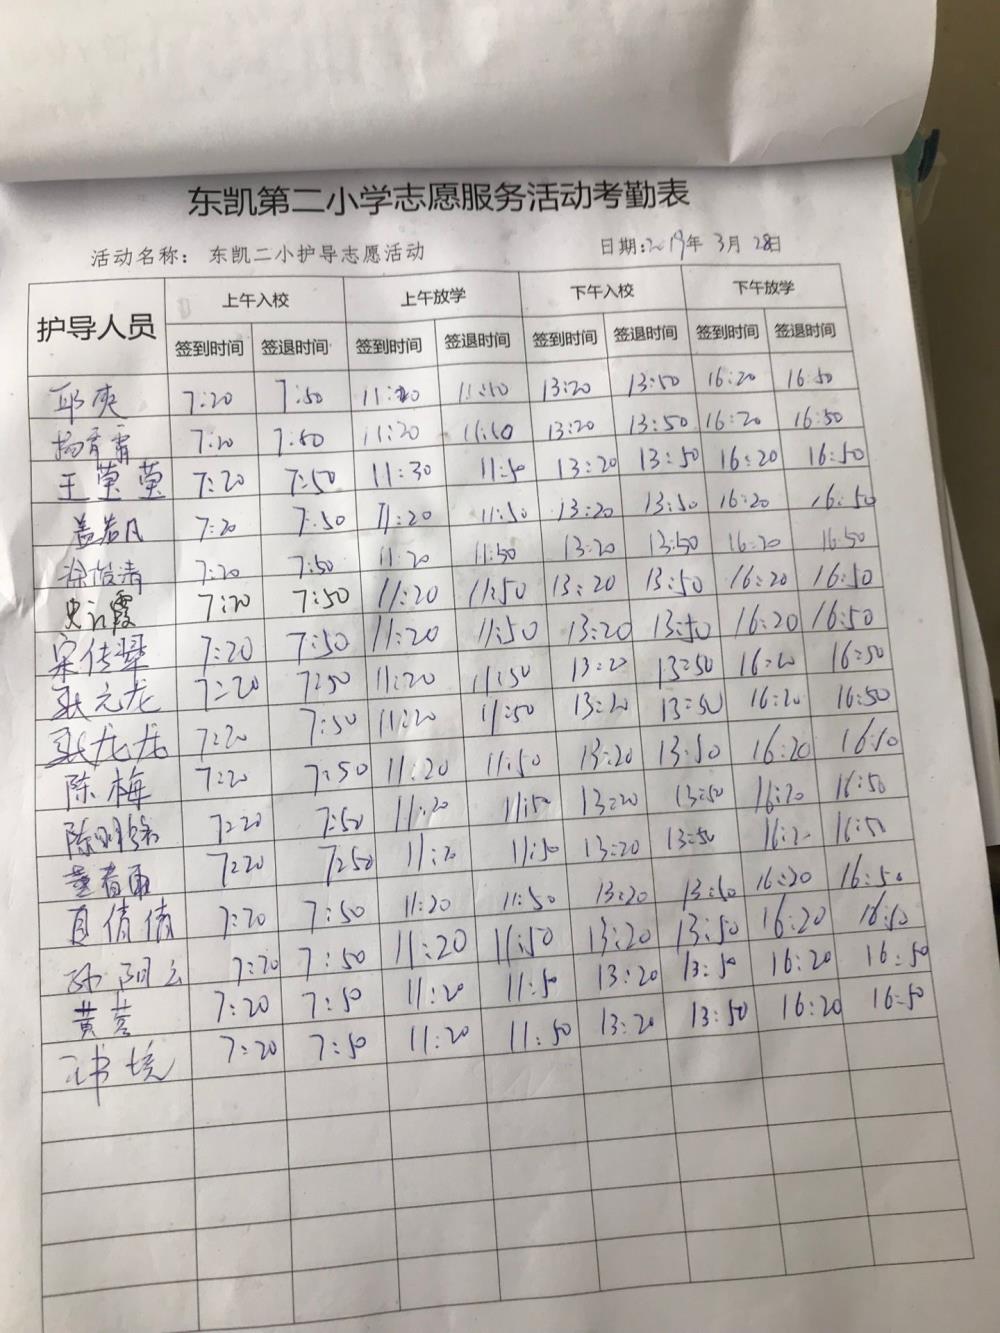 东凯第二小学志愿服务活动考勤表
活动名称： 东凯二小护导志愿活动 日期:2019年 3月 28日
护导人员 上午入校 上午放学 下午入校 下午放学
签到时间 签退时间 签到时间 签退时间 签到时间 签退时间 签到时间 签退时间
邱爽 7:20 7:50 11:20 11:50 13:20 13:50 16:20 16:50
杨霄霄 7:20 7:50 11:20 11:50 13:20 13:50 16:20 16:50
王莹莹 7:20 7:50 11:30 11:50 13:20 13:50 16:20 16:50
盖若凡 7:20 7:50 11:20 11:50 13:20 13:50 16:20 16:50
徐俊清 7:20 7:50 11:20 11:50 13:20 13:50 16:20 16:50
7:20 7:50 11:20 11:50 13:20 13:50 16:20 16:50
宋传翠 7:20 7:50 11:20 11:50 13:20 13:50 16:20 16:50
耿元龙 7:20 7:50 11:20 11:50 13:20 13:50 16:20 16:50
耿龙龙 7:20 7:50 11:20 11:50 13:20 13:50 16:20 16:50
陈梅 7:20 7:50 11:20 11:50 13:20 13:50 16:20 16:50
7:20 7:50 11:20 11:50 13:20 13:50 16:20 16:50
董春雨 7:20 7:50 11:20 11:50 13:20 13:50 16:20 16:50
倩倩 7:20 7:50 11:20 11:50 13:20 13:50 16:20 16:50
7:20 7:50 11:20 11:50 13:20 13:50 16:20 16:50
黄蓉 7:20 7:50 11:20 11:50 13:20 13:50 16:20 16:50
7:20 7:50 11:20 11:50 13:20 13:50 16:20 16:50